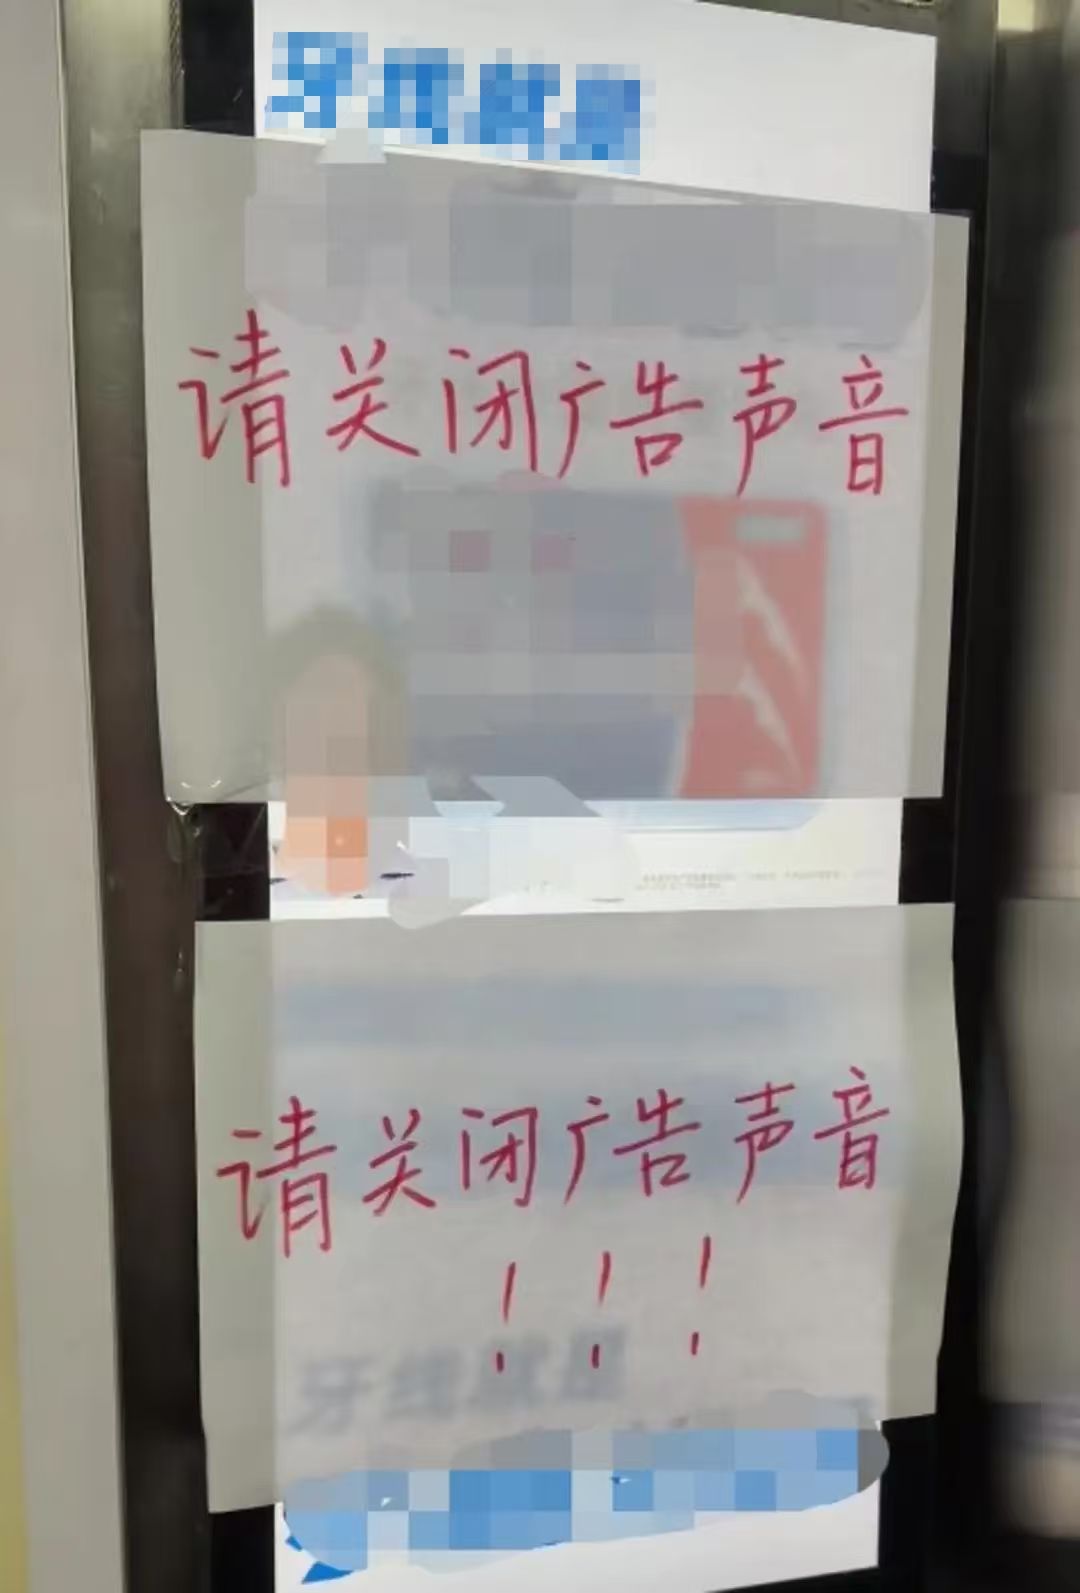 请关闭广告声音
请关闭广告声音
!!!